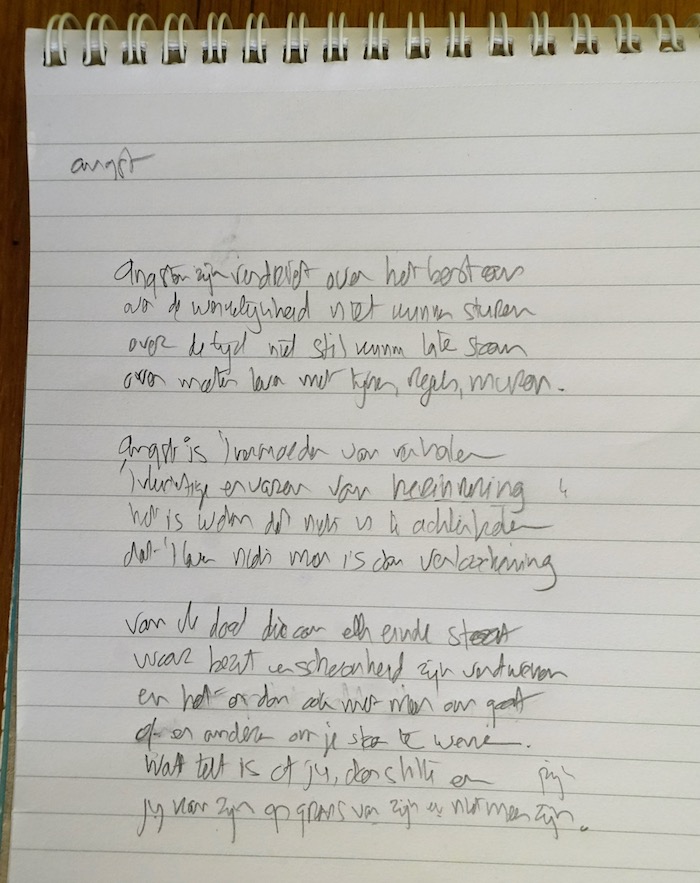 angst
Angsten zijn verdriet over het bestaan
over de werkelijkheid niet kunnen sturen
over de tijd niet stil kunnen late staan
over moeten leven met tijden, regels, muren.
Angst is 't vermoeden van verhalen
't vluchtige ervaren van herinnering
het is weten dat niets is te achterhalen
dat 't leven niets meer is dan
van de dood die aan elk einde staat
waar bezit en schoonheid zijn verdwenen
en het er dan ook niet meer om gaat
of er anderen om je staa te wenen.
Wat telt is of jij, den stilte en pijn
jij kan zijn op grens van zijn en niet meer zijn.